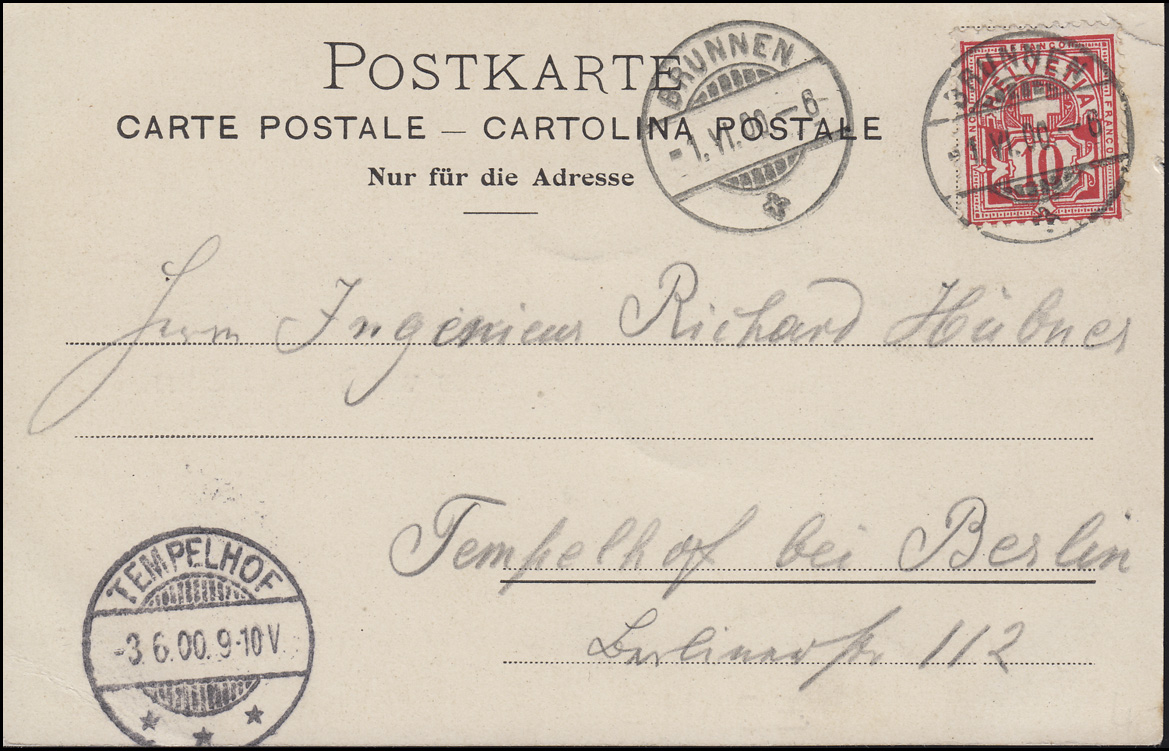 POSTKARTE
CARTE POSTALE – CARTOLINA POSTALE
Nur für die Adresse
BRUNNEN
-1.VI.00.-6
BRUNNEN
-1.VI.00.-6
FRANCO
HELVETIA
FRANCO
10
Herrn Ingenieur Richard Hübner
Tempelhof bei Berlin
Berlinerstr 112
TEMPELHOF
-3.6.00.9-10V.